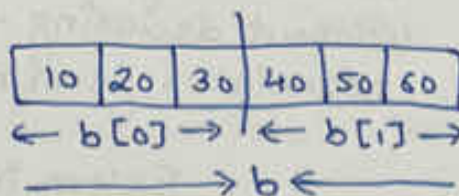 10 20 30 40 50 60
b[0] b[1]
b